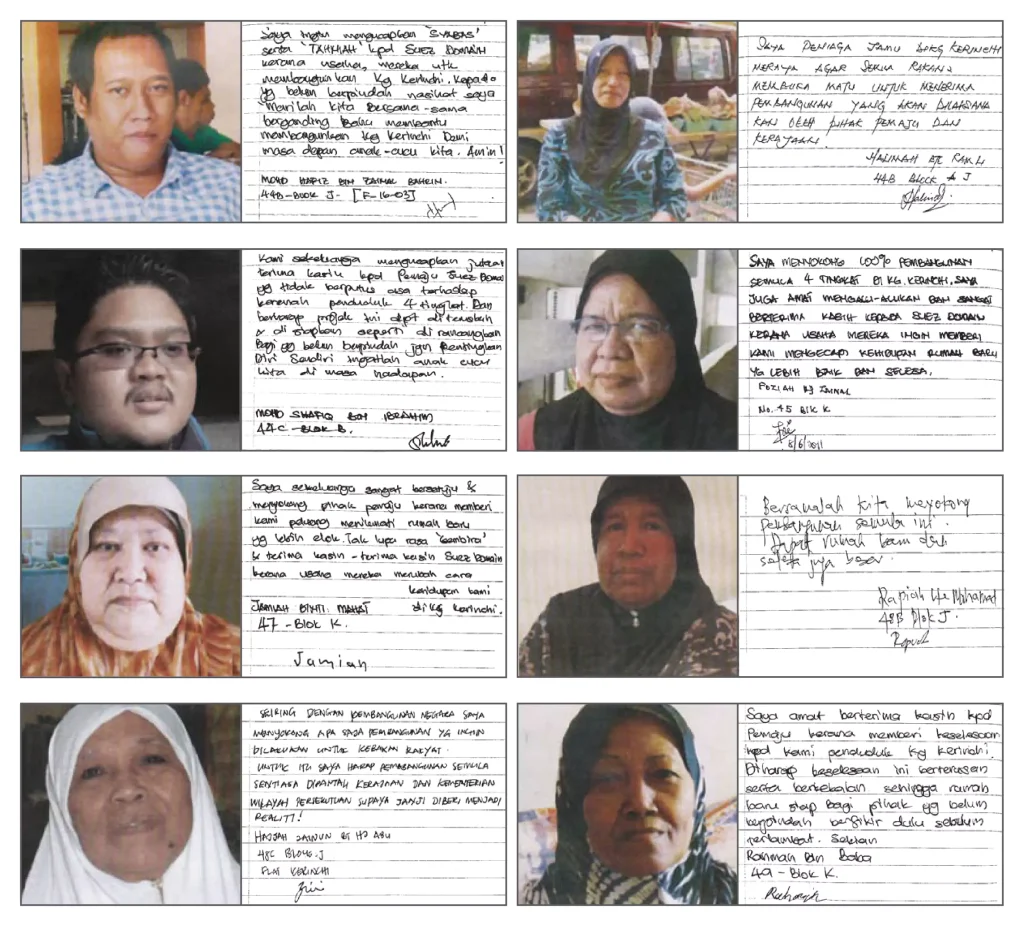 Saya ingin mengucapkan 'SYABAS'
serta 'TAHNIAH' kpd SUEZ DOMAIN
kerana usaha, mereka utk
membangunkan Kg Kerinchi. Kepada
yg belum berpindah nasihat saya
marilah kita bersama-sama
berganding bahu membantu
membangunkan Kg Kerinchi Demi
masa depan anak-cucu kita. Amin!
MOHD HAFIZ BIN ZAINAL BAHRIN.
44B-BLOK J- [F-16-03]
SAYA PENIAGA JAMU DI KG KERINCHI
MERAYU AGAR SEMUA RAKAN2
MEMBUKA MATU UNTUK MENERIMA
PEMBANGUNAN YANG AKAN DILAKSANA
KAN OLEH PIHAK PEMAJU DAN
KERAJAAN.
HALIMAH BTE RAMLI
44B BLOCK J
Kami sekeluarga mengucapkan jutaan
terima kasih kpd Pemaju Suez Domain
yg tidak berputus asa terhadap
kerenah penduduk 4 tingkat. Dan
berharap projek ini dpt diteruskan
& di siapkan seperti di rancangkan
Bagi yg belum berpindah jgn Pentingkan
Diri Sendiri ingatlah anak cucu
kita di masa hadapan.
MOHD SHAFIQ BIN IBRAHIM
44C -BLOK B.
SAYA MENYOKONG 100% PEMBANGUNAN
SEMULA 4 TINGKAT DI KG. KERINCHI. SAYA
JUGA AMAT MENGALU-ALUKAN DAN SANGAT
BERTERIMA KASIH KEPADA SUEZ DOMAIN
KERANA USAHA MEREKA INGIN MEMBERI
KAMI MENGECAPI KEHIDUPAN RUMAH BARU
YG LEBIH BAIK DAN SELESA.
FOZIAH BJ ZAINAL
No. 45 Blk K
8/6/2011
Saya sekeluarga sangat bersetuju &
menyokong pihak pemaju kerana memberi
kami peluang menikmati rumah baru
yg lebih elok. Tak lupa rasa 'Gembira'
& terima kasih - terima kasih Suez Domain
kerana usaha mereka merubah cara
kehidupan kami
di kg kerinchi.
JAMIAH BINTI MAHAT
47 - Blok K.
Jamiah
Bersamalah kita menyokong
pembangunan semula ini.
Dapat rumah baru dan
selesa juga besar.
Rapiah Hj Mohamad
48B Blok J.
SEIRING DENGAN PEMBANGUNAN NEGARA SAYA
MENYOKONG APA SAJA PEMBANGUNAN YG INGIN
DILAKUKAN UNTUK KEBAIKAN RAKYAT.
UNTUK ITU SAYA HARAP PEMBANGUNAN SEMULA
SENTIASA DIPANTAU KERAJAAN DAN KEMENTERIAN
WILAYAH PERSEKUTUAN SUPAYA JANJI DIBERI MENJADI
REALITI!
HAJJAH JAINUN BT HJ ABU
48C BLOCK J
FLAT KERINCHI
Saya amat berterima kasih kpd
Pemaju kerana memberi keselesaan
kpd kami penduduk Kg Kerinchi.
Diharap keselesaan ini berterusan
serta berkekalan sehingga rumah
baru siap bagi pihak yg belum
berpindah berfikir dulu sebelum
terlambat. Sekian
Rahmah Bin Baba
49 - Blok K.